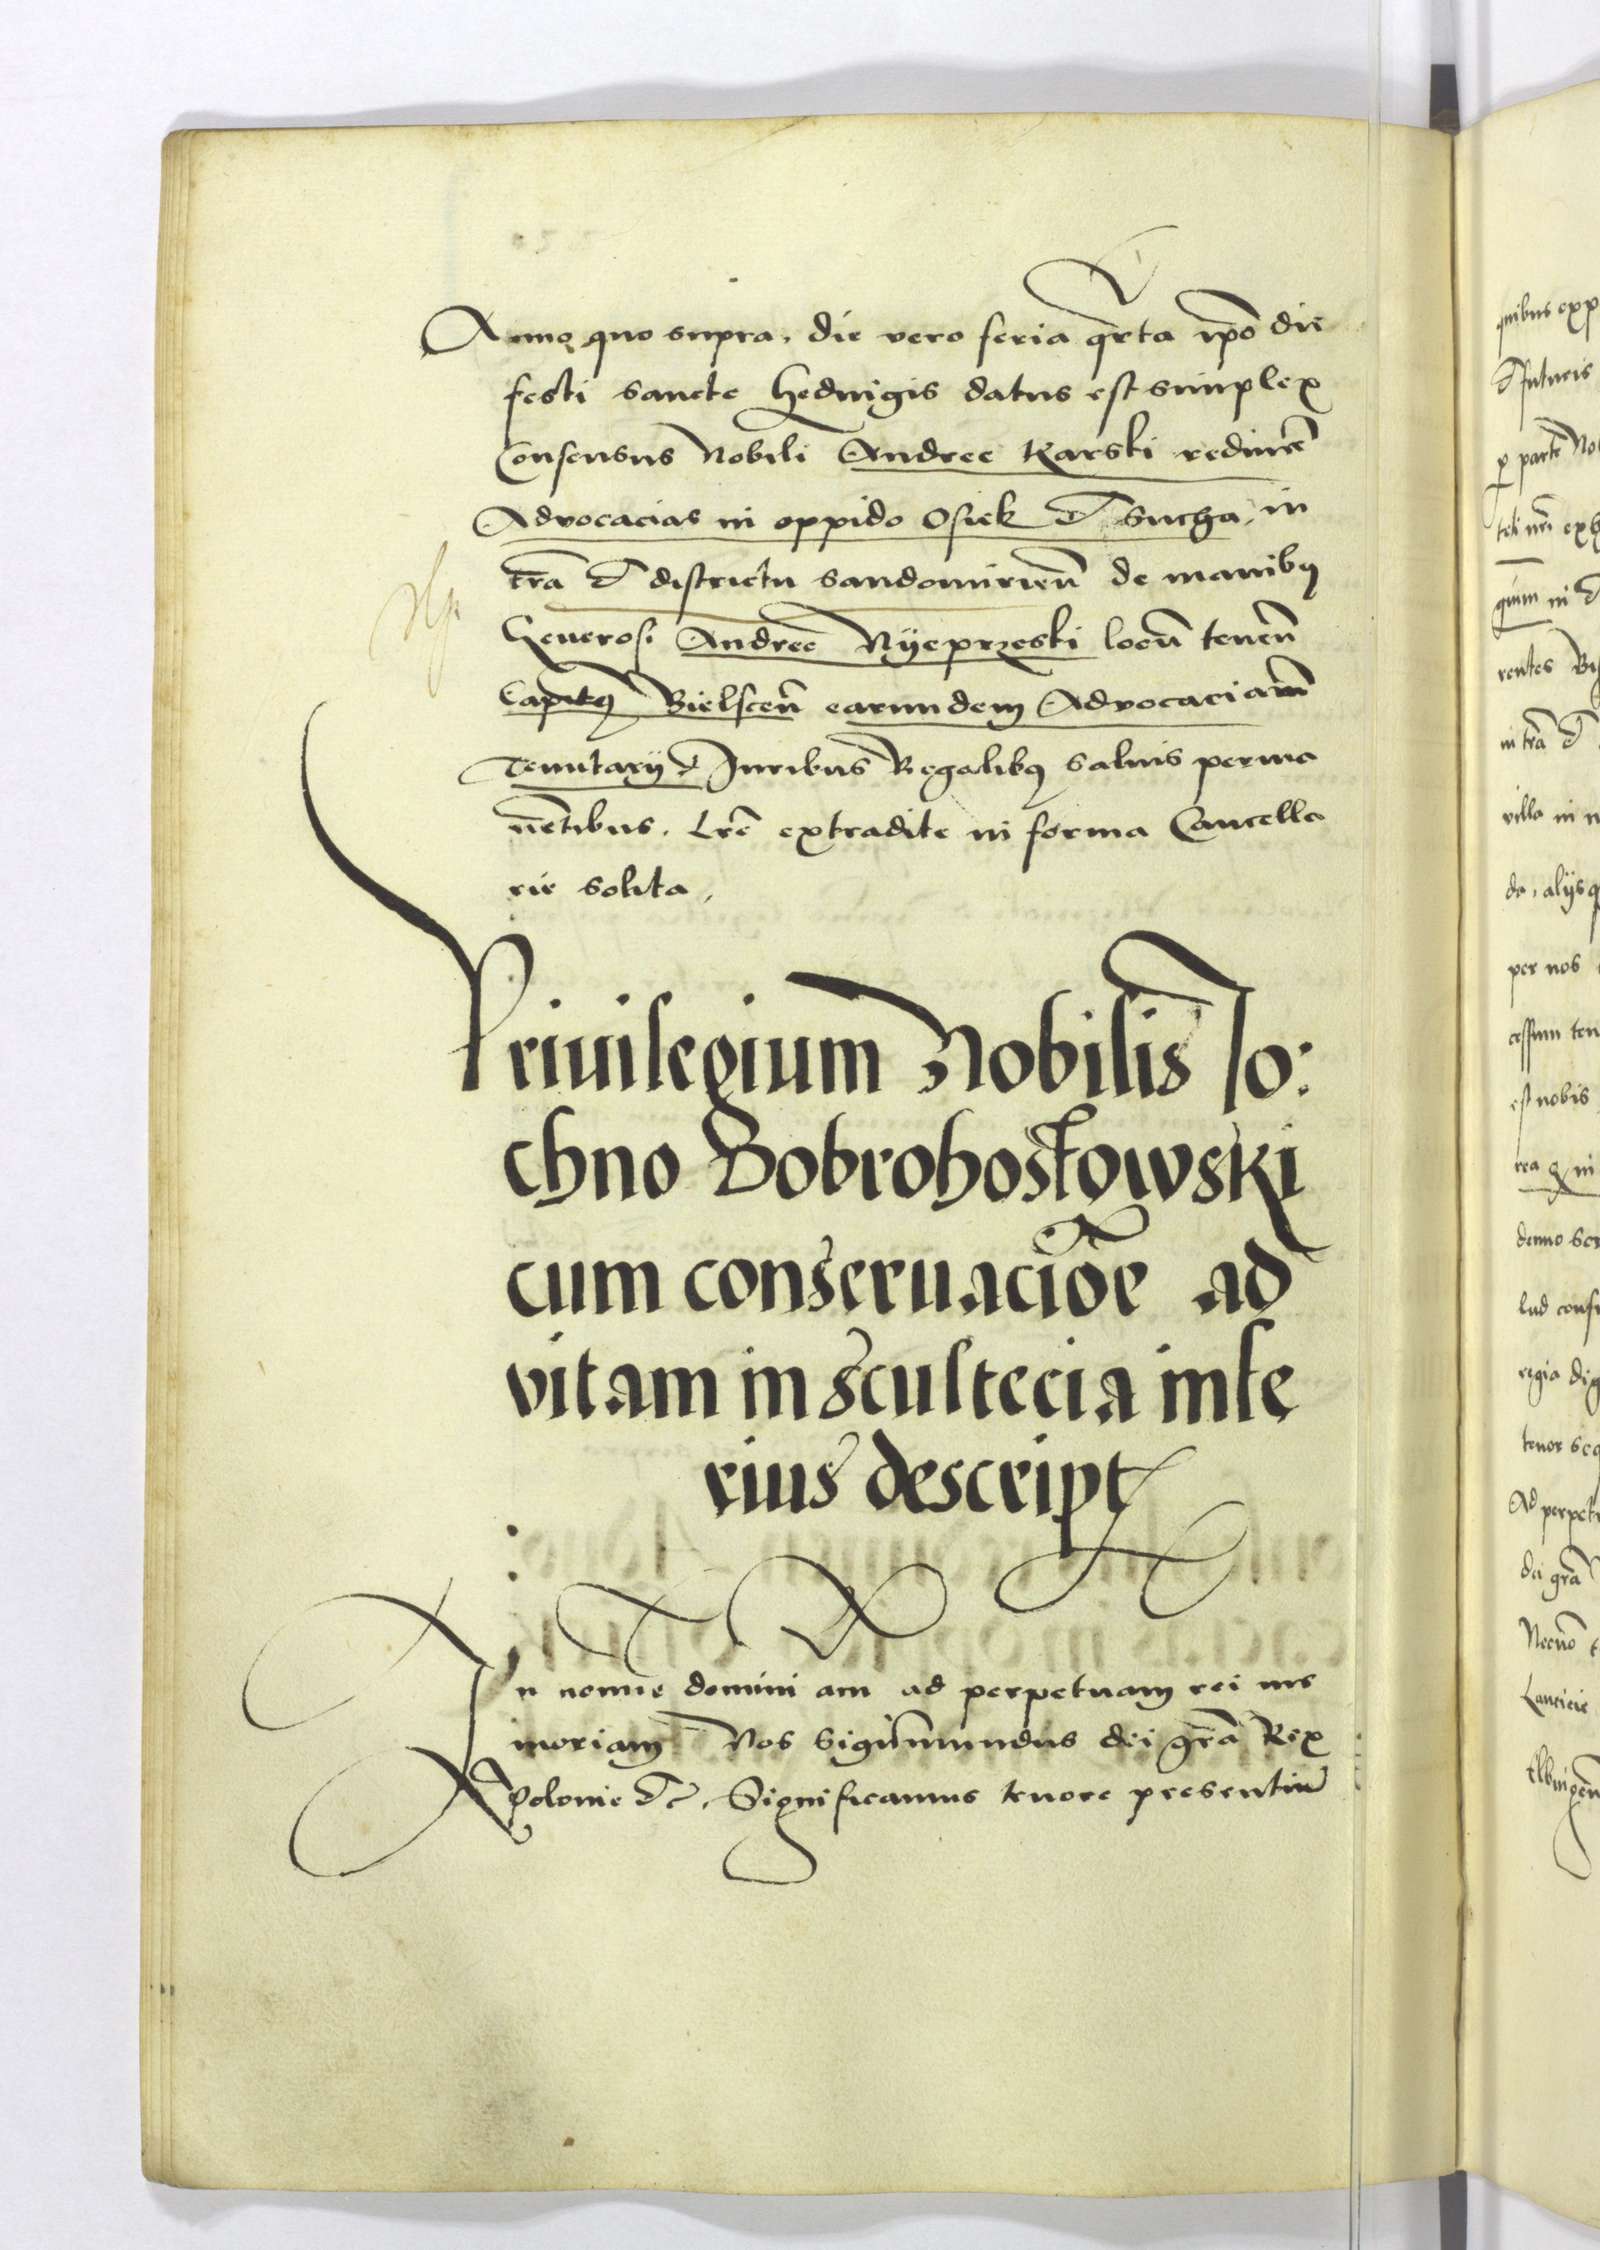 Anno quo supra, die vero feria qrta ipo die
festi sancte Hedwigis datus est simplex
Consensus Nobili Andree Karski redimere
Advocacias in oppido Osiek et Sucha, in
tra et districtu Sandomirien de manibus
Generosi Andree Nyeprzeski locu tenen
Capitus Bielscen earundem Advocaciarum
Tenutarij et Juribus Regalibus salvis perma
netibus. Lre extradite in forma Cancella
rie solita,
Privilegium Nobilis Jo:
chno Bobrohostowski
cum conservacioe ad
vitam in scultecia infe
rius descript
In nomine domini am ad perpetuam rei me
moriam Nos Sigismundus dei gra Rex
Polonie etc. Significamus tenore presentiu
quibus exp
et futuris
p parte No
teli nri exh
quum in
rentes
in tra et
villa in
da, alijs q
per nos
cessum ten
est nobis
lud conf
regia dig
tenor seq
Ad perpetu
dei gra
Necno
Lancicie
Elbingen